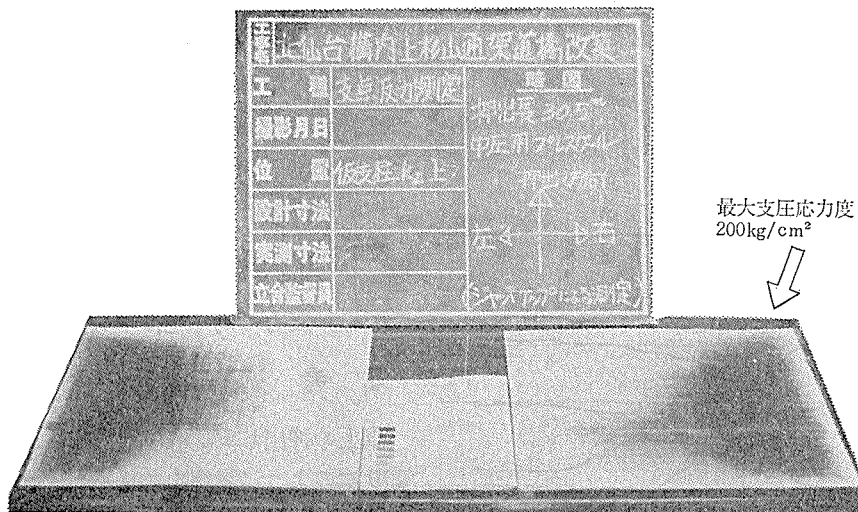 工事名 仙台構内上杉山通架道橋改築
工種 支点反力測定
撮影月日
位置 仮支柱 上
設計寸法
実測寸法
立会監督員
略図
押出長 30.5m
中圧用プレスケール
左 右
(ジャッキアップによる測定)
最大支圧応力度
200kg/cm²